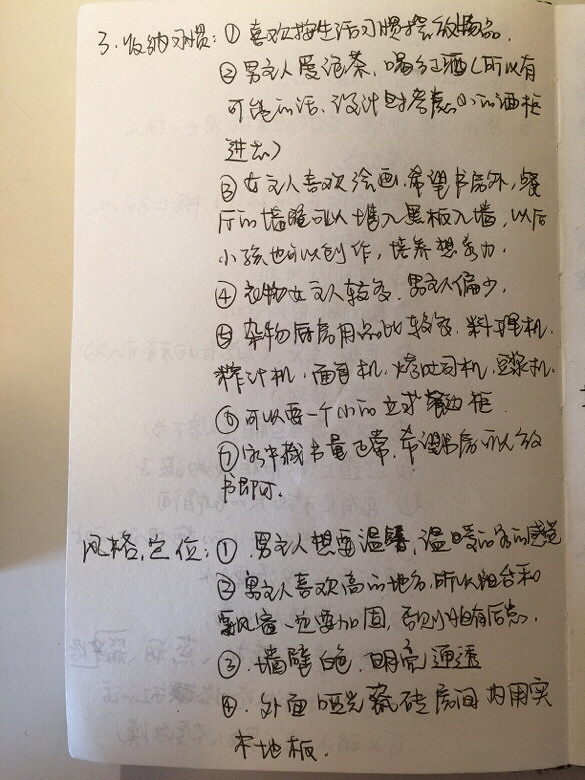 3. 收纳习惯：① 喜欢按生活习惯摆放物品.
② 男主人爱泡茶，喝红酒（所以有
可能的话，设计时考虑小的酒柜
进去）
③ 女主人喜欢绘画.希望书房外，餐
厅的墙壁可以嵌入黑板入墙，以后
小孩也可以创作，培养想象力.
④ 衣物女主人较多.男主人偏少.
⑤ 杂物厨房用品比较多，料理机.
榨汁机.面包机.烤吐司机.豆浆机.
⑥ 可以要一个小的立式餐边柜.
⑦ 家中藏书量正常.希望书房可以放
书即可.
风格，定位：① 男主人想要温馨，温暖的家的感觉
② 男主人喜欢高的地方.所以阳台和
飘窗一定要加固，否则小阳有后患.
③ 墙壁白色.明亮通透
④. 外面哑光瓷砖房间内用实
木地板.